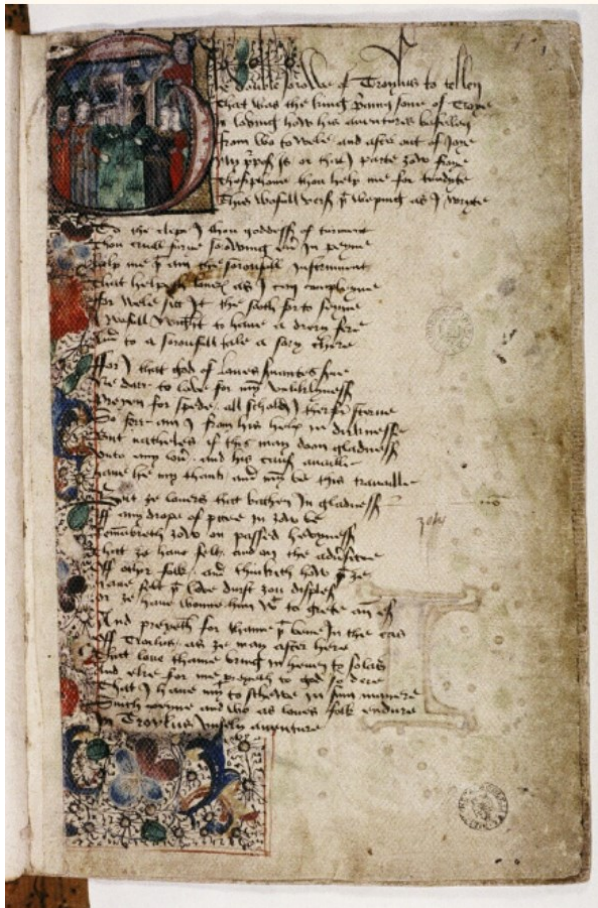 he double sorowe of Troylus to tellen
That was the king sone of Troye
In loving how his auentures befellen
From wo to wele and after out of Ioye
My is or that I parte ȝow
Thesiphone thou help me for tendyte
wofull vers þt weping as I wryte
To the clepe I thou goddess of turment
Thou cruell furie sorowing euer in peyne
Help me þt am the sorowfull Instrument
That helpeth louers as I can compleyne
For wele sitt It the soth forto feyne
A wofull wight to haue a drery fere
And to a sorowfull tale a sory chere
For I that god of loues seruantes serue
Ne dare to loue for myn vnliklyness
Preyen for spede all schold I therfor sterue
So ferr am I from his help in dirknesse
But natheles if this may doon gladness
Vnto any and his cause auaille
Haue he my thank and myn be this trauaille
Bot ȝe louers that bathen In gladness
Iff any drope of pitee in ȝow be
Remembreth ȝow on passed hevyness
That ȝe haue felt and on the aduersitee
Off othir folk and thinketh how þt ȝe
Haue felt þt loue durst ȝou displess
Or ȝe haue wonne him with to grete an ess
And preyeth for thame þt bene In the cas
Off Troilus as ȝe may after here
That loue thame bring in hevin to solas
And eke for me preyeth to god so dere
That I haue myght to schewe in sum manere
Suich peyne and wo as loues folk endure
In Troylus vnsely auenture